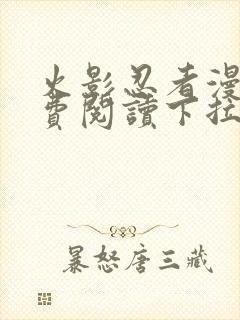 火影忍者漫
费閱讀下拉
暴怒唐三藏